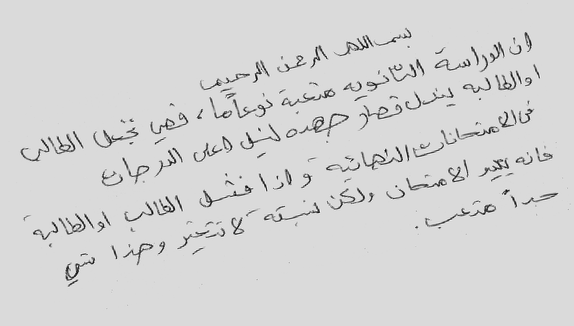 بسم الله الرحمن الرحيم
ان الدراسة الثانويه متعبة نوعاً ما، فهي تجعل الطالب
او الطالبه يبذل قصار جهده لنيل اعلى الدرجات
في الامتحانات النهائية و اذا فشل الطالب او الطالبة
فانه يعيد الامتحان ولكن نسبته لا تتغير وهذا شي
جداً متعب.